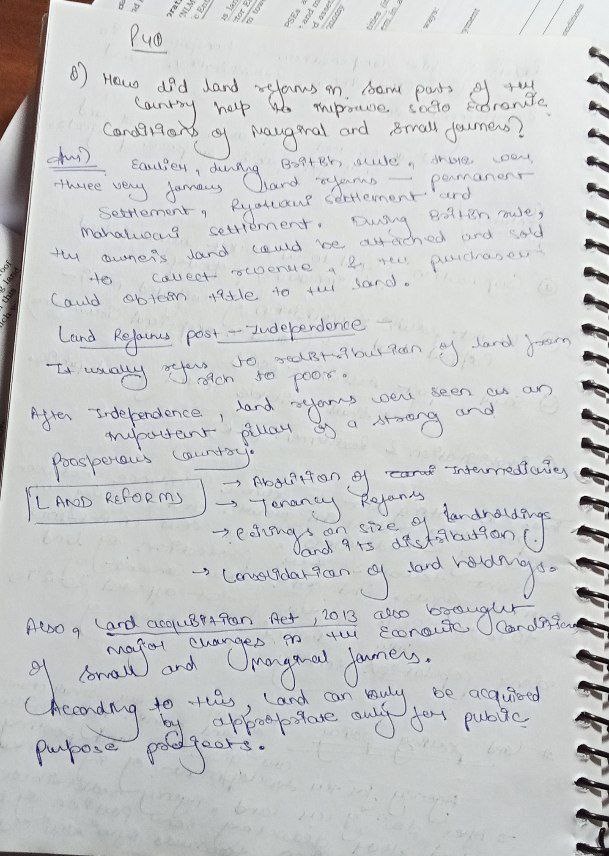 PYQ
Q) How did land reforms in some parts of the
country help to improve socio economic
conditions of marginal and small farmers?
Ans) Earlier, during British rule, there were
three very famous land reforms — permanent
Settlement, Ryotwari settlement and
Mahalwari settlement. During British rule,
the owner's land could be attached and sold
to collect revenue, & the purchaser
could obtain title to the land.
Land Reforms post-Independence
It usually refers to redistribution of land from
rich to poor.
After Independence, land reforms were seen as an
important pillar of a strong and
prosperous country.
LAND REFORMS
→ Abolition of Intermediaries
→ Tenancy Reforms
→ ceilings on size of landholdings
and its distribution
→ Consolidation of land holdings.
Also, Land acquisition Act, 2013 also brought
major changes in the Economic Condition
of small and marginal farmers.
According to this, land can only be acquired
by appropriate only for public
purpose projects.